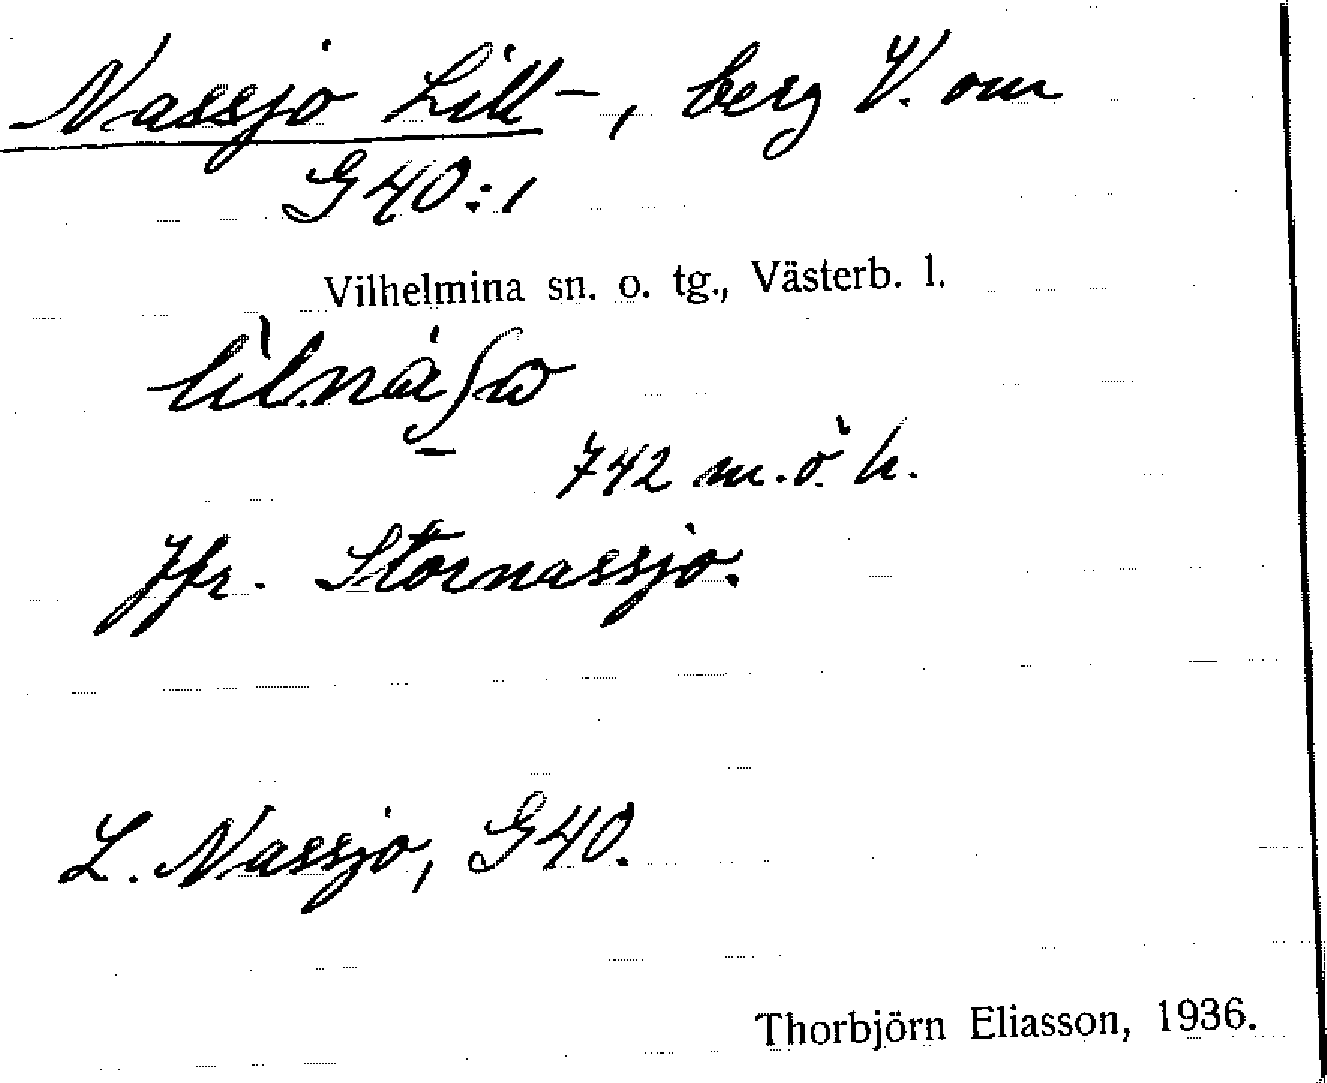 Nassjo Lill-, berg V. om
G40:1
Vilhelmina sn. o. tg., Västerb. l.
742 m.ö.h.
Jfr. Stornassjo.
L. Nassjo, G40.
Thorbjörn Eliasson, 1936.